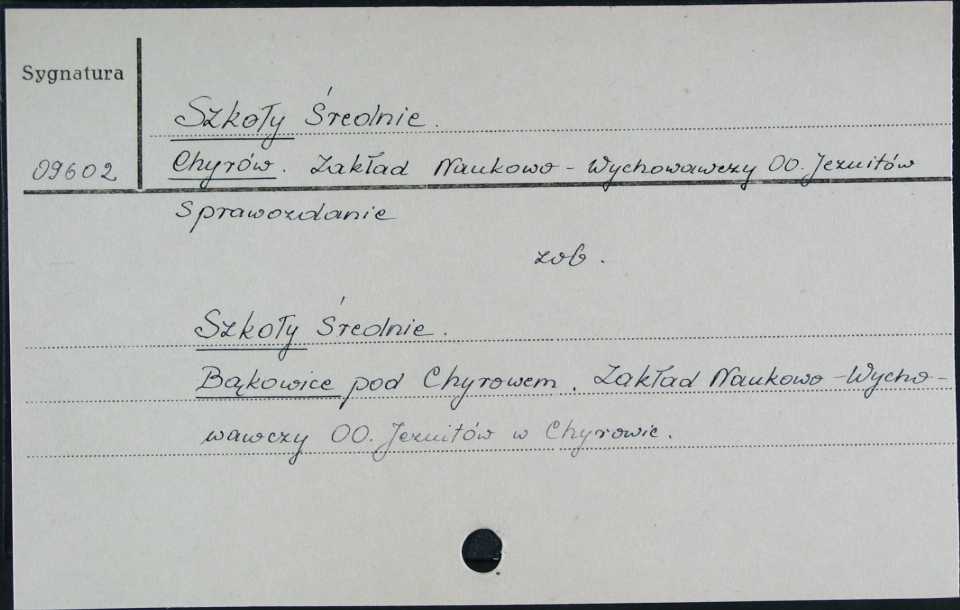 Sygnatura
Szkoły Średnie.
09602
Chyrów. Zakład Naukowo-Wychowawczy OO. Jezuitów
Sprawozdanie
zob.
Szkoły Średnie.
Bąkowice pod Chyrowem. Zakład Naukowo-Wycho-
wawczy OO. Jezuitów w Chyrowie.